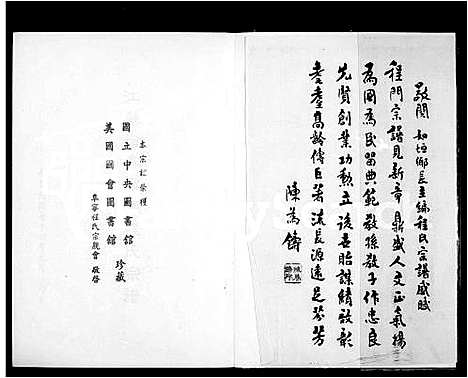 敬閱 如垣鄉長主編程氏宗譜感賦
程門宗譜見新章鼎盛人文正氣揚
為國為民留典範教孫教子作忠良
先賢創業功勳立後昆貽謀績啟彰
耄耋高齡傳巨著流長源遠足芬芳
陳為鐈
本宗記榮獲
國立中央圖書館
美國國會圖書館
珍藏
阜寧程氏宗親會 敬啓